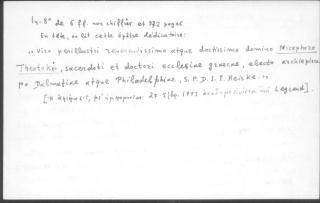 In-8° de 6 ff. non chiffrés et 772 pages.
En tête, on lit cette épître dédicatoire:
"Viro perillustri reverendissimo atque doctissimo domino Nicephoro
Theotokio, sacerdoti et doctori ecclesiae graecae, electo archiepisco
po Dalmatiae atque Philadelphiae, S. P. D. I. I. Reiske."
27 1773 Legrand].